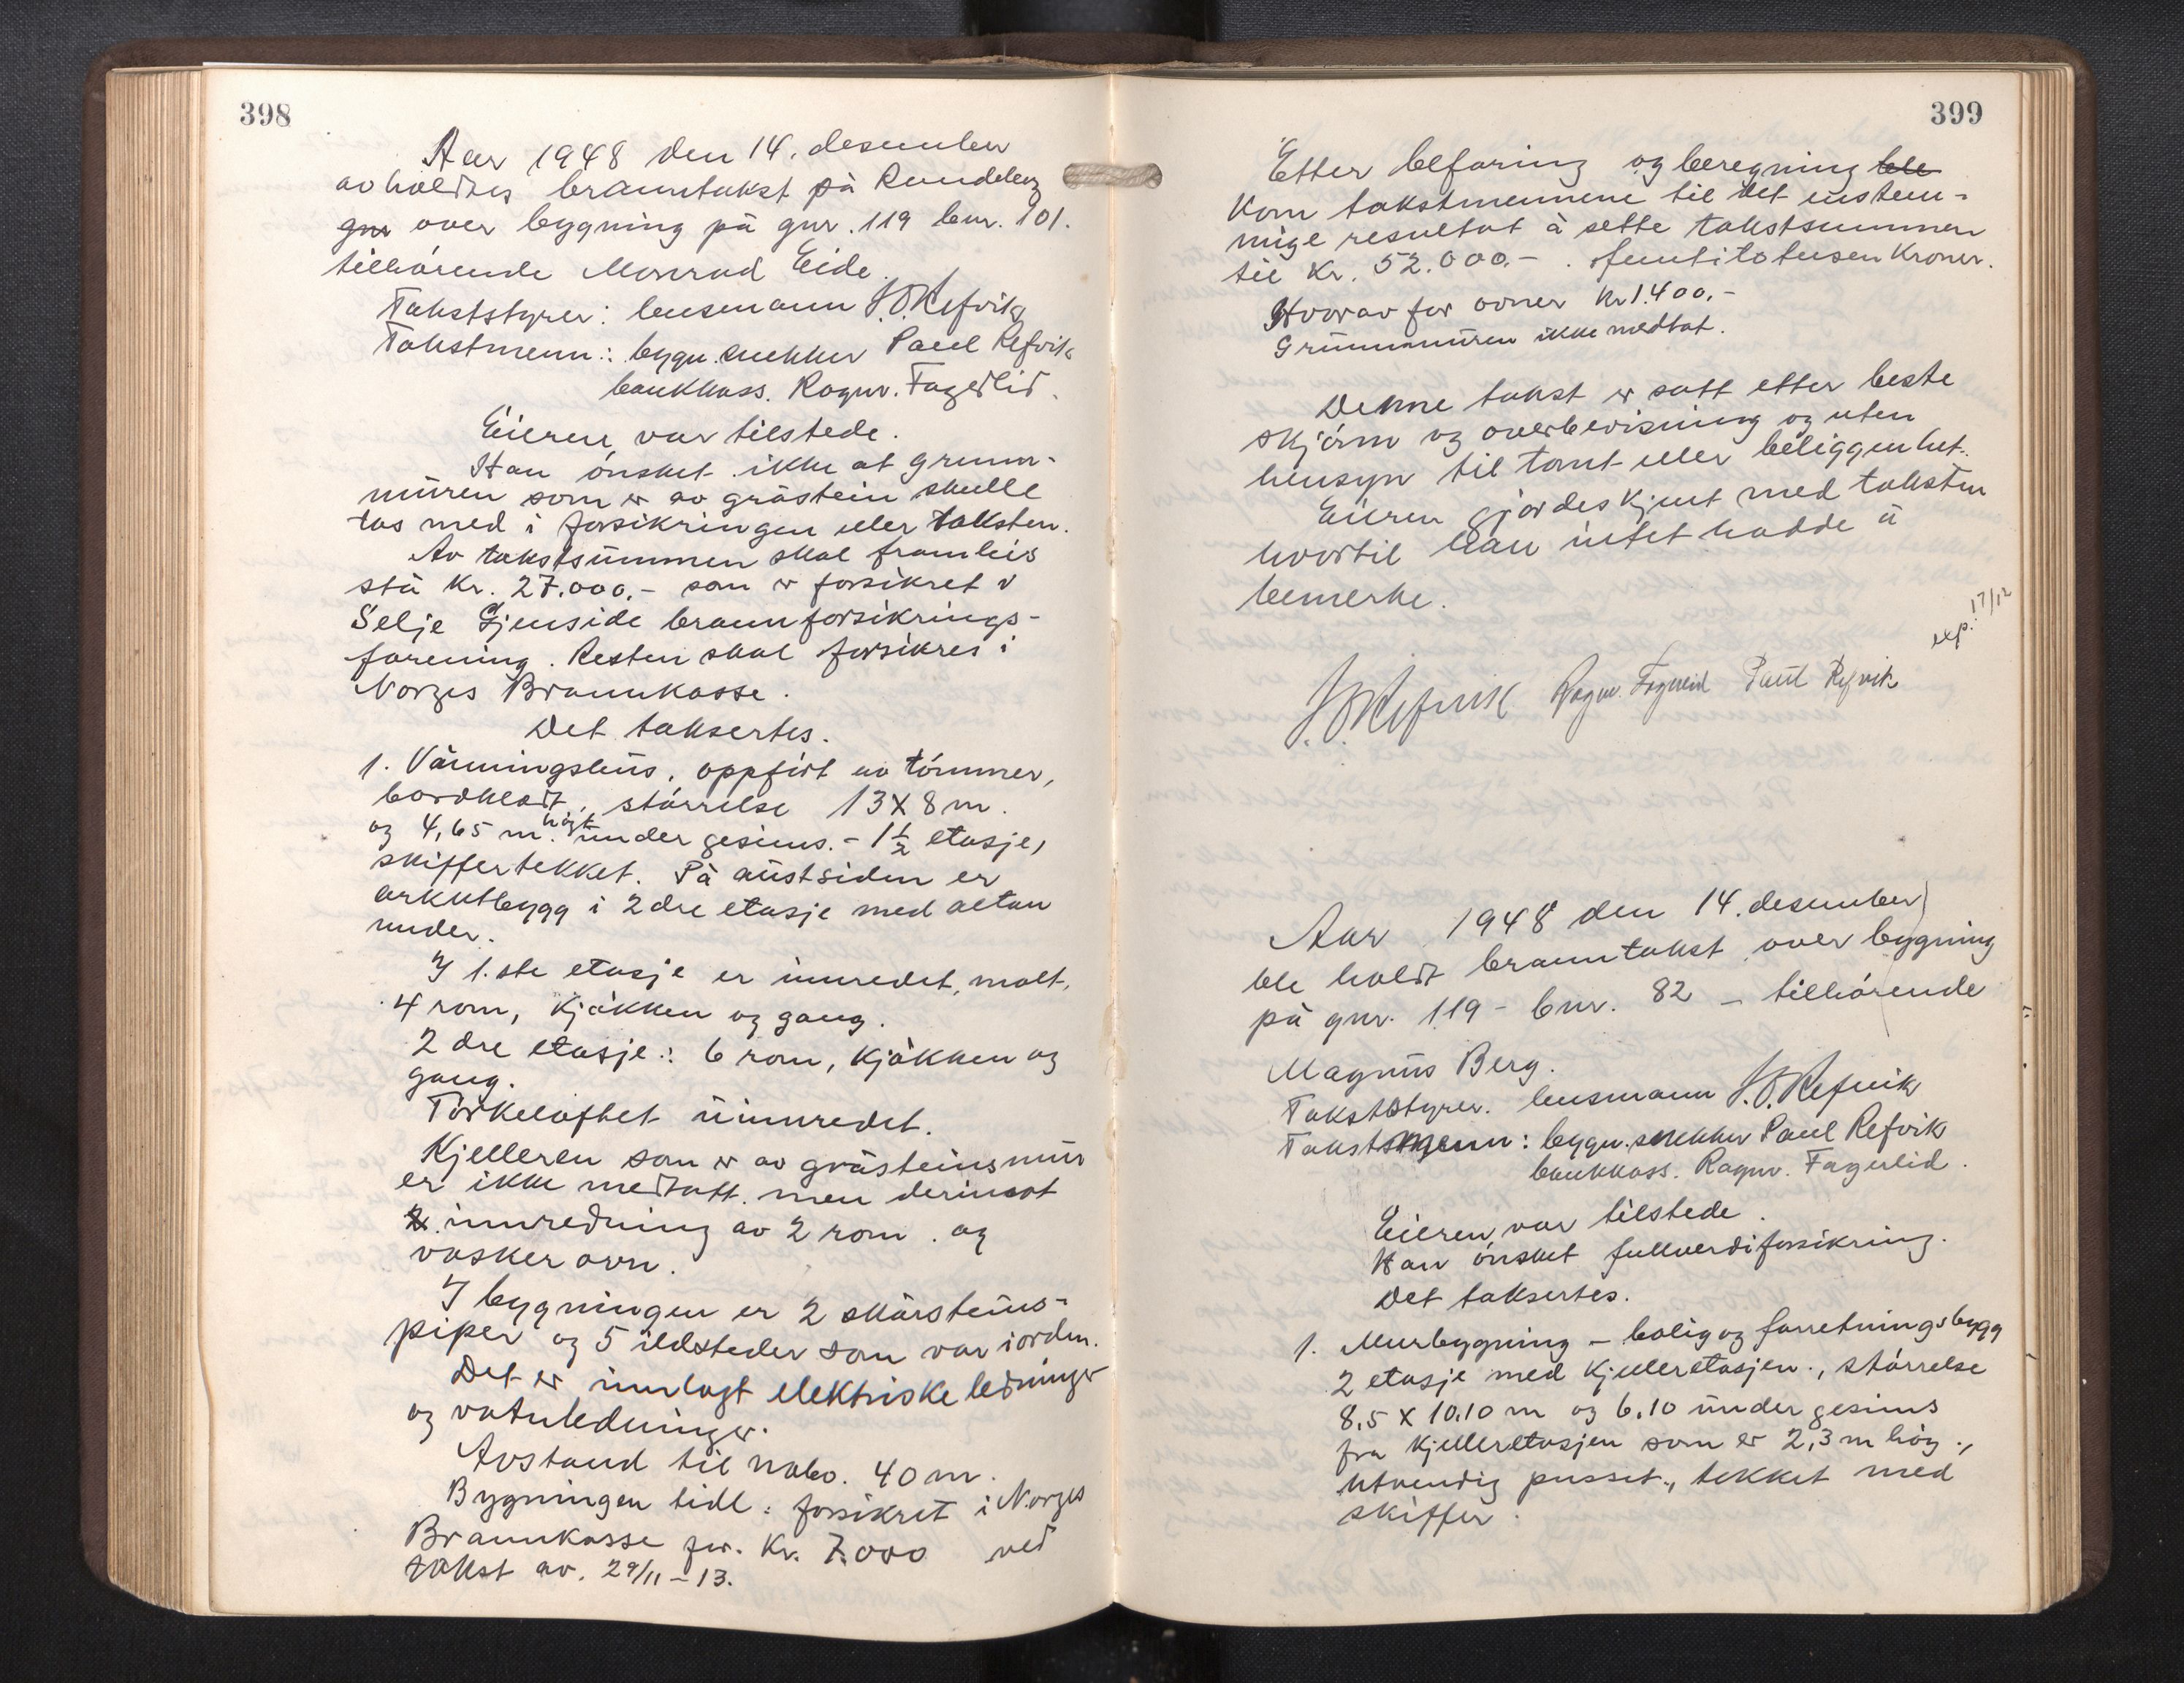 398
Aar 1948 den 14. desember
avholdtes branntakst på Rundeberg
gnr over bygning på gnr. 119 bnr. 101.
tilhørende Monrad Eide.
Takststyrer: lensmann J.O. Refvik
Takstmenn: bygn.snekker Paul Refvik
bankkass. Ragnv. Fagerlid.
Eieren var tilstede.
Han ønsket ikke at grunn-
muren som er av gråstein skulle
tas med i forsikringen eller taksten.
Av takstsummen skal framleis
stå kr. 27.000,- som er forsikret v
Selje Gjenside brannforsikrings-
forening. Resten skal forsikres i
Norges Brannkasse.
Det taksertes.
1. Våningshus, oppført av tømmer,
bordkledt, størrelse 13 X 8 m.
og 4,65 m. høgt under gesims. - 1½ etasje,
skiffertekket. På austsiden er
arkutbygg i 2dre etasje med altan
under.
I 1.ste etasje er innredet, malt,
4 rom, kjøkken og gang.
2 dre etasje: 6 rom, kjøkken og
gang.
Tørkeloftet uinnredet.
Kjelleren som er av gråsteinsmur
er ikke medtatt men derimot
2. innredning av 2 rom. og
vasker ovn.
I bygningen er 2 skorsteins-
piper og 5 ildsteder som var iorden.
Det er innlagt elektriske ledninger
og vatnledninger.
Avstand til nabo. 40 m.
Bygningen tidl: forsikret i Norges
Brannkasse for. Kr. 7.000 ved
takst av. 29/11-13.
399
Etter befaring og beregning ble
kom takstmennene til det enstem-
mige resultat å sette takstsummen
til kr. 52.000.- . femtitotusen kroner.
Hvorav for ovner kr 1.400.-
Grunnmuren ikke medtat.
Denne takst er satt etter beste
skjønn og overbevisning og uten
hensyn til tomt eller beliggenhet.
Eieren gjordes kjent med taksten
hvortil han intet hadde å
bemerke.
exp. 17/12
J.O. Refvik Ragnv. Fagerlid Paul Refvik
Aar 1948 den 14. desember
ble holdt branntakst over bygning
på gnr. 119 - bnr. 82 - tilhørende
Magnus Berg.
Takststyrer. lensmann J.O. Refvik
Takstsmenn: bygn.snekker Paul Refvik
bankkass. Ragnv. Fagerlid.
Eieren var tilstede.
Han ønsket fullverdiforsikring.
Det taksertes.
1. Murbygning - bolig og forretningsbygg
2 etasje med kjelleretasjen., størrelse
8,5 X 10,10 m og 6,10 under gesims
fra kjelleretasjen som er 2,3 m høg.,
utvendig pusset., tekket med
skiffer.